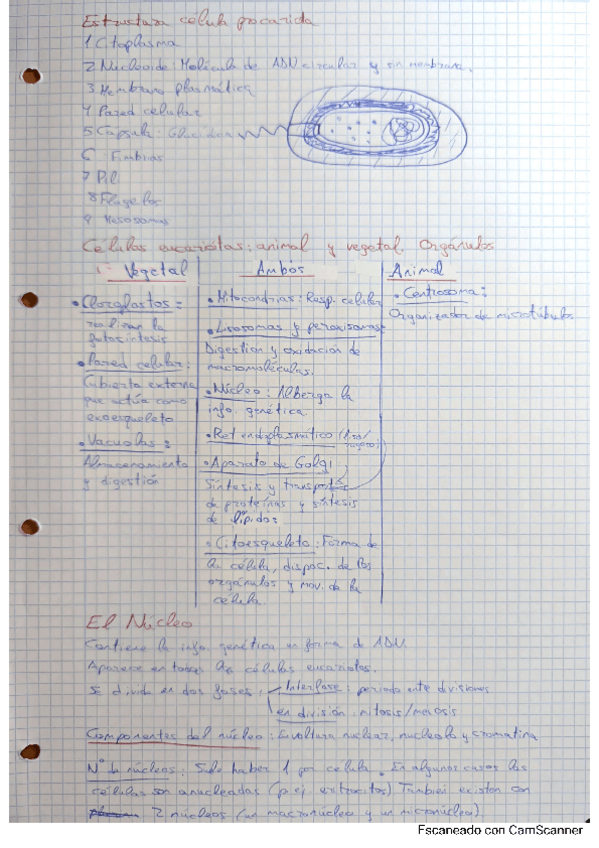 Estructura célula procariota
1 Citoplasma
2 Nucleoide: Molécula de ADN circular y sin membrana.
3 Membrana plasmática
4 Pared celular
5 Capsula: Glucídica
6 Fimbrias
7 Pili
8 Flagelos
9 Mesosomas
Células eucariotas: animal y vegetal. Orgánulos
Vegetal
• Cloroplastos:
realizan la
fotosíntesis
• Pared celular:
Cubierta externa
que actúa como
exoesqueleto
• Vacuolas:
Almacenamiento
y digestión
Ambos
• Mitocondrias: Resp. celular
• Lisosomas y peroxisomas
Digestión y oxidación de
macromoléculas.
• Núcleo: Alberga la
info. genética
• Ret endoplasmático (liso/
rugoso)
• Aparato de Golgi
Síntesis y transporte
de proteínas y síntesis
de lípidos
• Citoesqueleto: Forma de
la célula, dispoc. de los
orgánulos y mov. de la
célula.
Animal
• Centrosoma:
Organizador de microtúbulos
El Núcleo
Contiene la info. genética en forma de ADN.
Aparece en todas las células eucariotas.
Se divide en dos fases: Interfase: periodo entre divisiones
en división: mitosis/meiosis
Componentes del núcleo: Envoltura nuclear, nucleolo y cromatina
Nº de núcleos: Suele haber 1 por celula. En algunos casos las
células son anucleadas (p ej. eritrocitos) También existen con
2 núcleos (un macronúcleo y un micronúcleo)
Escaneado con CamScanner